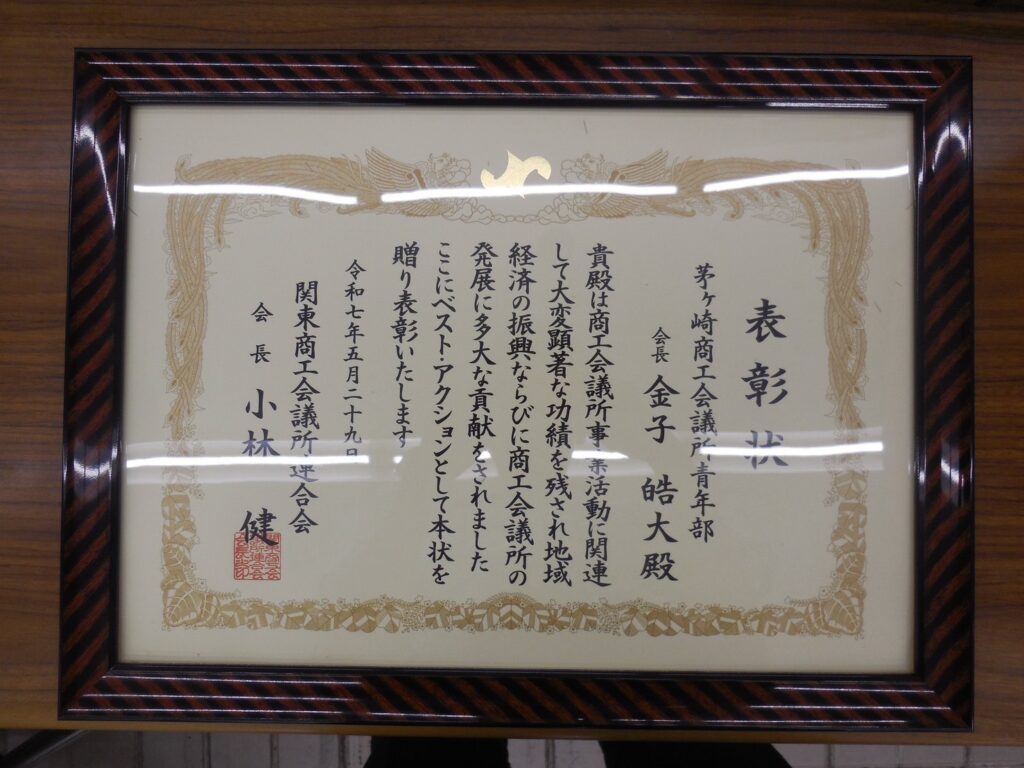 表彰状
茅ヶ崎商工会議所青年部
会長 金子 皓大殿
貴殿は商工会議所事業活動に関連
して大変顕著な功績を残され地域
経済の振興ならびに商工会議所の
発展に多大な貢献をされました
ここにベスト・アクションとして本状を
贈り表彰いたします
令和七年五月二十九日
関東商工会議所連合会
会長 小林 健